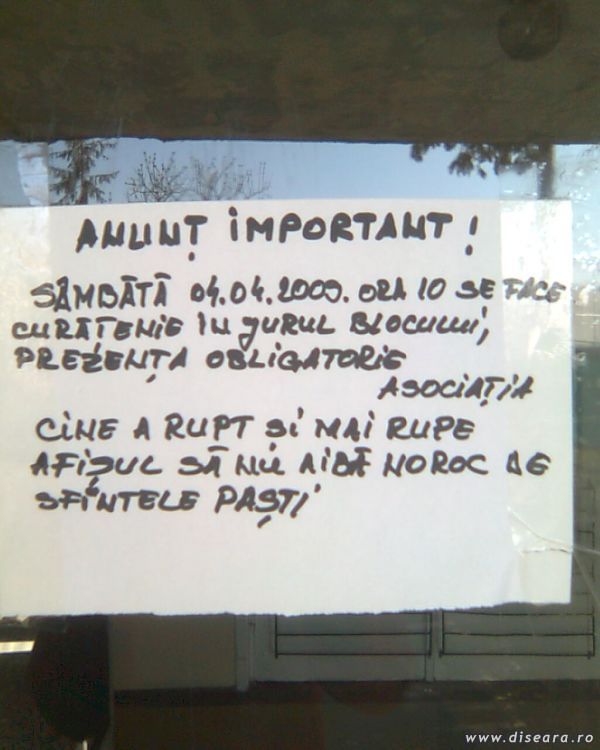 ANUNȚ IMPORTANT!
SÂMBĂTĂ 04.04.2009. ORA 10 SE FACE
CURĂTENIE IN JURUL BLOCULUI,
PREZENȚA OBLIGATORIE
ASOCIAȚIA
CINE A RUPT ȘI MAI RUPE
AFIȘUL SĂ NU AIBĂ NOROC DE
SFINTELE PAȘTI
www.diseara.ro